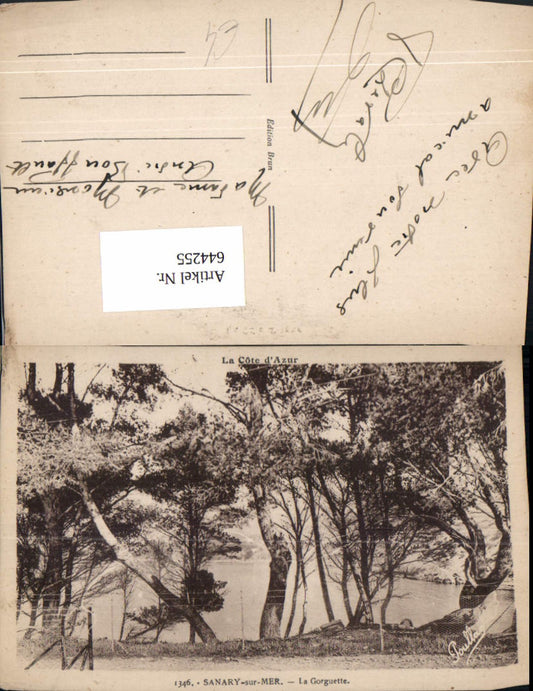 Avec notre plus
amical souvenir
Edition Brun
Madame et Monsieur
André
Artikel Nr.
644255
La Côte d'Azur
1346. - SANARY-sur-MER. — La Gorguette.